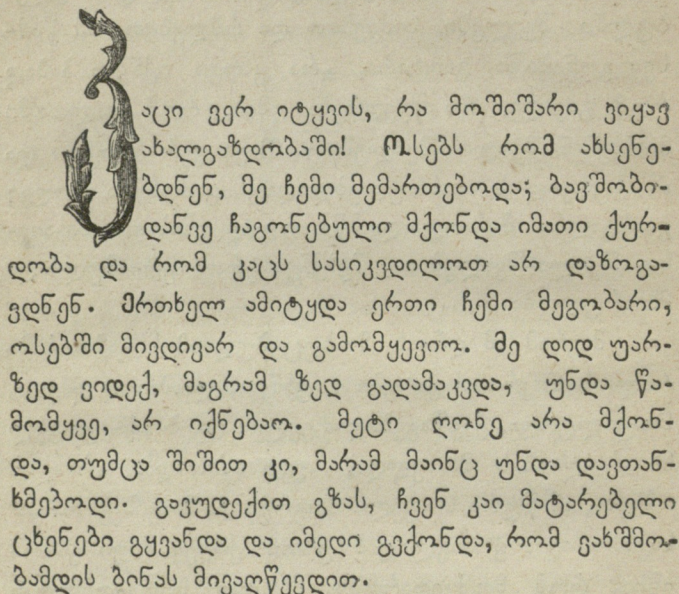 კაცი ვერ იტყვის, რა მოშიშარი ვიყავ
ახალგაზდობაში! ოსებს რომ ახსენე-
ბდნენ, მე ჩემი მემართებოდა; ბავშობი-
დანვე ჩაგონებული მქონდა იმათი ქურ-
დობა და რომ კაცს სასიკვდილოთ არ დაზოგა-
ვდნენ. ერთხელ ამიტყდა ერთი ჩემი მეგობარი,
ოსებში მივდივარ და გამომყევიო. მე დიდ უარ-
ზედ ვიდექ, მაგრამ ზედ გადამაკვდა, უნდა წა-
მომყვე, არ იქნებაო. მეტი ღონე არა მქონ-
და, თუმცა შიშით კი, მარამ მაინც უნდა დავთან-
ხმებოდი. გავუდექით გზას, ჩვენ კაი მატარებელი
ცხენები გყვანდა და იმედი გვქონდა, რომ ვახშმო-
ბამდის ბინას მივაღწევდით.